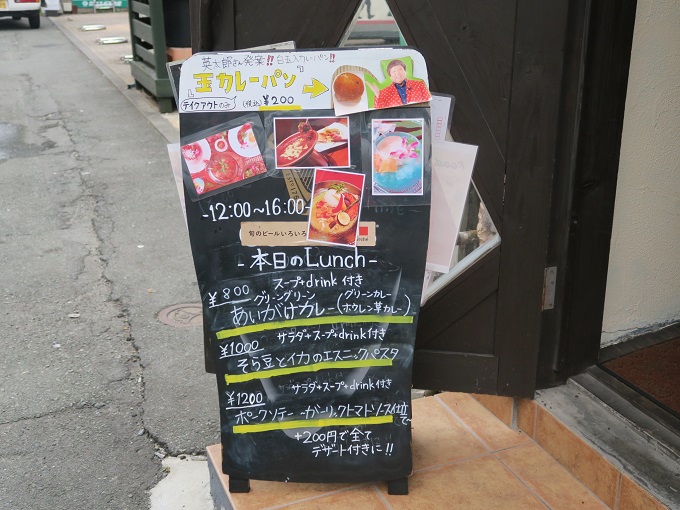 英太郎さん発案!! 白玉入カレーパン!!
『玉カレーパン』
テイクアウトのみ (税込) ¥200
-12:00~16:00-
旬のビールいろいろ
-本日のLunch-
スープ+drink 付き
¥800 グリーングリーン
あいがけカレー(グリーンカレー ホウレン草カレー)
¥1000 サラダ+スープ+drink付き
そら豆とイカのエスニックパスタ
サラダ+スープ+drink付き
¥1200
ポークソテーガーリックトマトソース仕立て
+200円で全て
デザート付きに!!